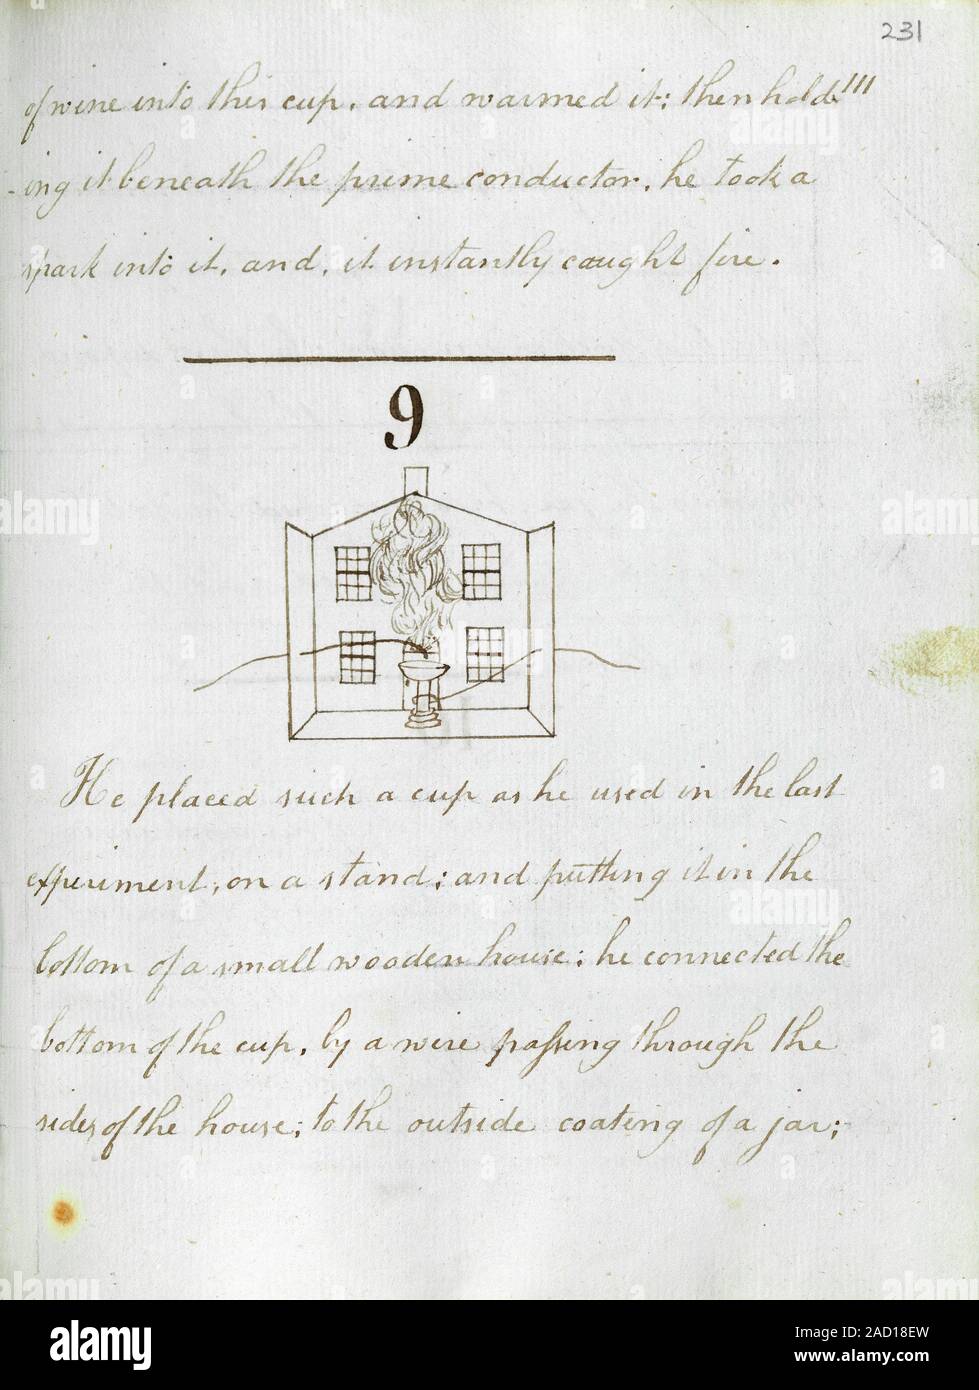 231
of wine into this cup, and warmed it; then hold-
-ing it beneath the prime conductor, he took a
spark into it, and, it instantly caught fire.
9
He placed such a cup as he used in the last
experiment, on a stand; and putting it in the
bottom of a small wooden house; he connected the
bottom of the cup, by a wire paſsing through the
sides of the house; to the outside coating of a jar;
alamy
Image ID: 2AD18EW
www.alamy.com